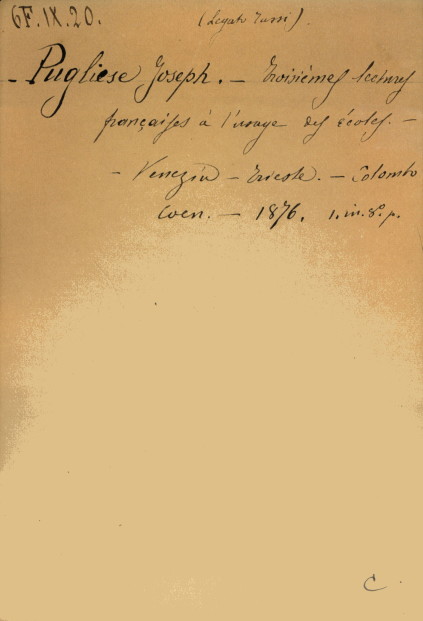 6F.IX.20. (Legato Tursi).
- Pugliese Joseph. - Troisièmes lectures
françaises à l'usage des écoles. -
- Venezia - Trieste. - Colombo
Coen. - 1876. 1. in. 8º. p.
C